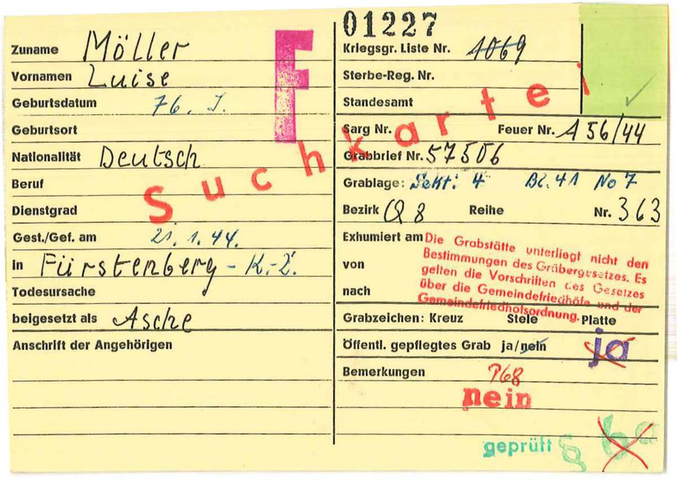 Zuname Möller
Vornamen Luise
Geburtsdatum 76. J.
Geburtsort
Nationalität Deutsch
Beruf
Dienstgrad
Gest./Gef. am 21. 1. 44.
In Fürstenberg - K.-Z.
Todesursache
beigesetzt als Asche
Anschrift der Angehörigen
F
Suchkartei
01227
Kriegsgr. Liste Nr. 1069
Sterbe-Reg. Nr.
Standesamt
Sarg Nr. Feuer Nr. A 56/44
Grabbrief Nr. 57506
Grablage: Sekt: 4 Bl. 41 No 7
Bezirk Q 8 Reihe Nr. 363
Exhumiert am
von
nach
Die Grabstätte unterliegt nicht den
Bestimmungen des Gräbergesetzes. Es
gelten die Vorschriften des Gesetzes
über die Gemeindefriedhöfe und der
Gemeindefriedhofsordnung.
Grabzeichen: Kreuz Stele Platte
Öffentl. gepflegtes Grab ja/nein ja
Bemerkungen P68
nein
geprüft §